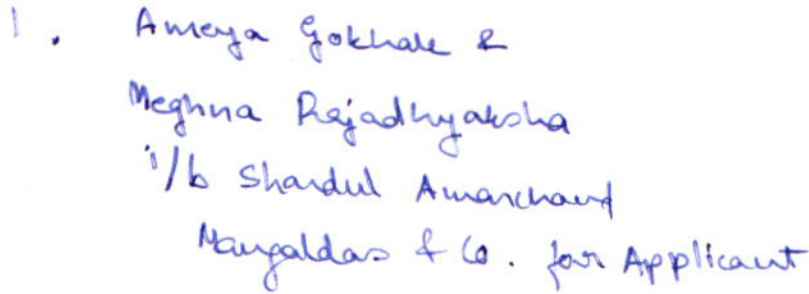 1. Ameya Gokhale &
Meghna Rajadhyaksha
i/b Shardul Amarchand
Mangaldas & Co. for Applicant